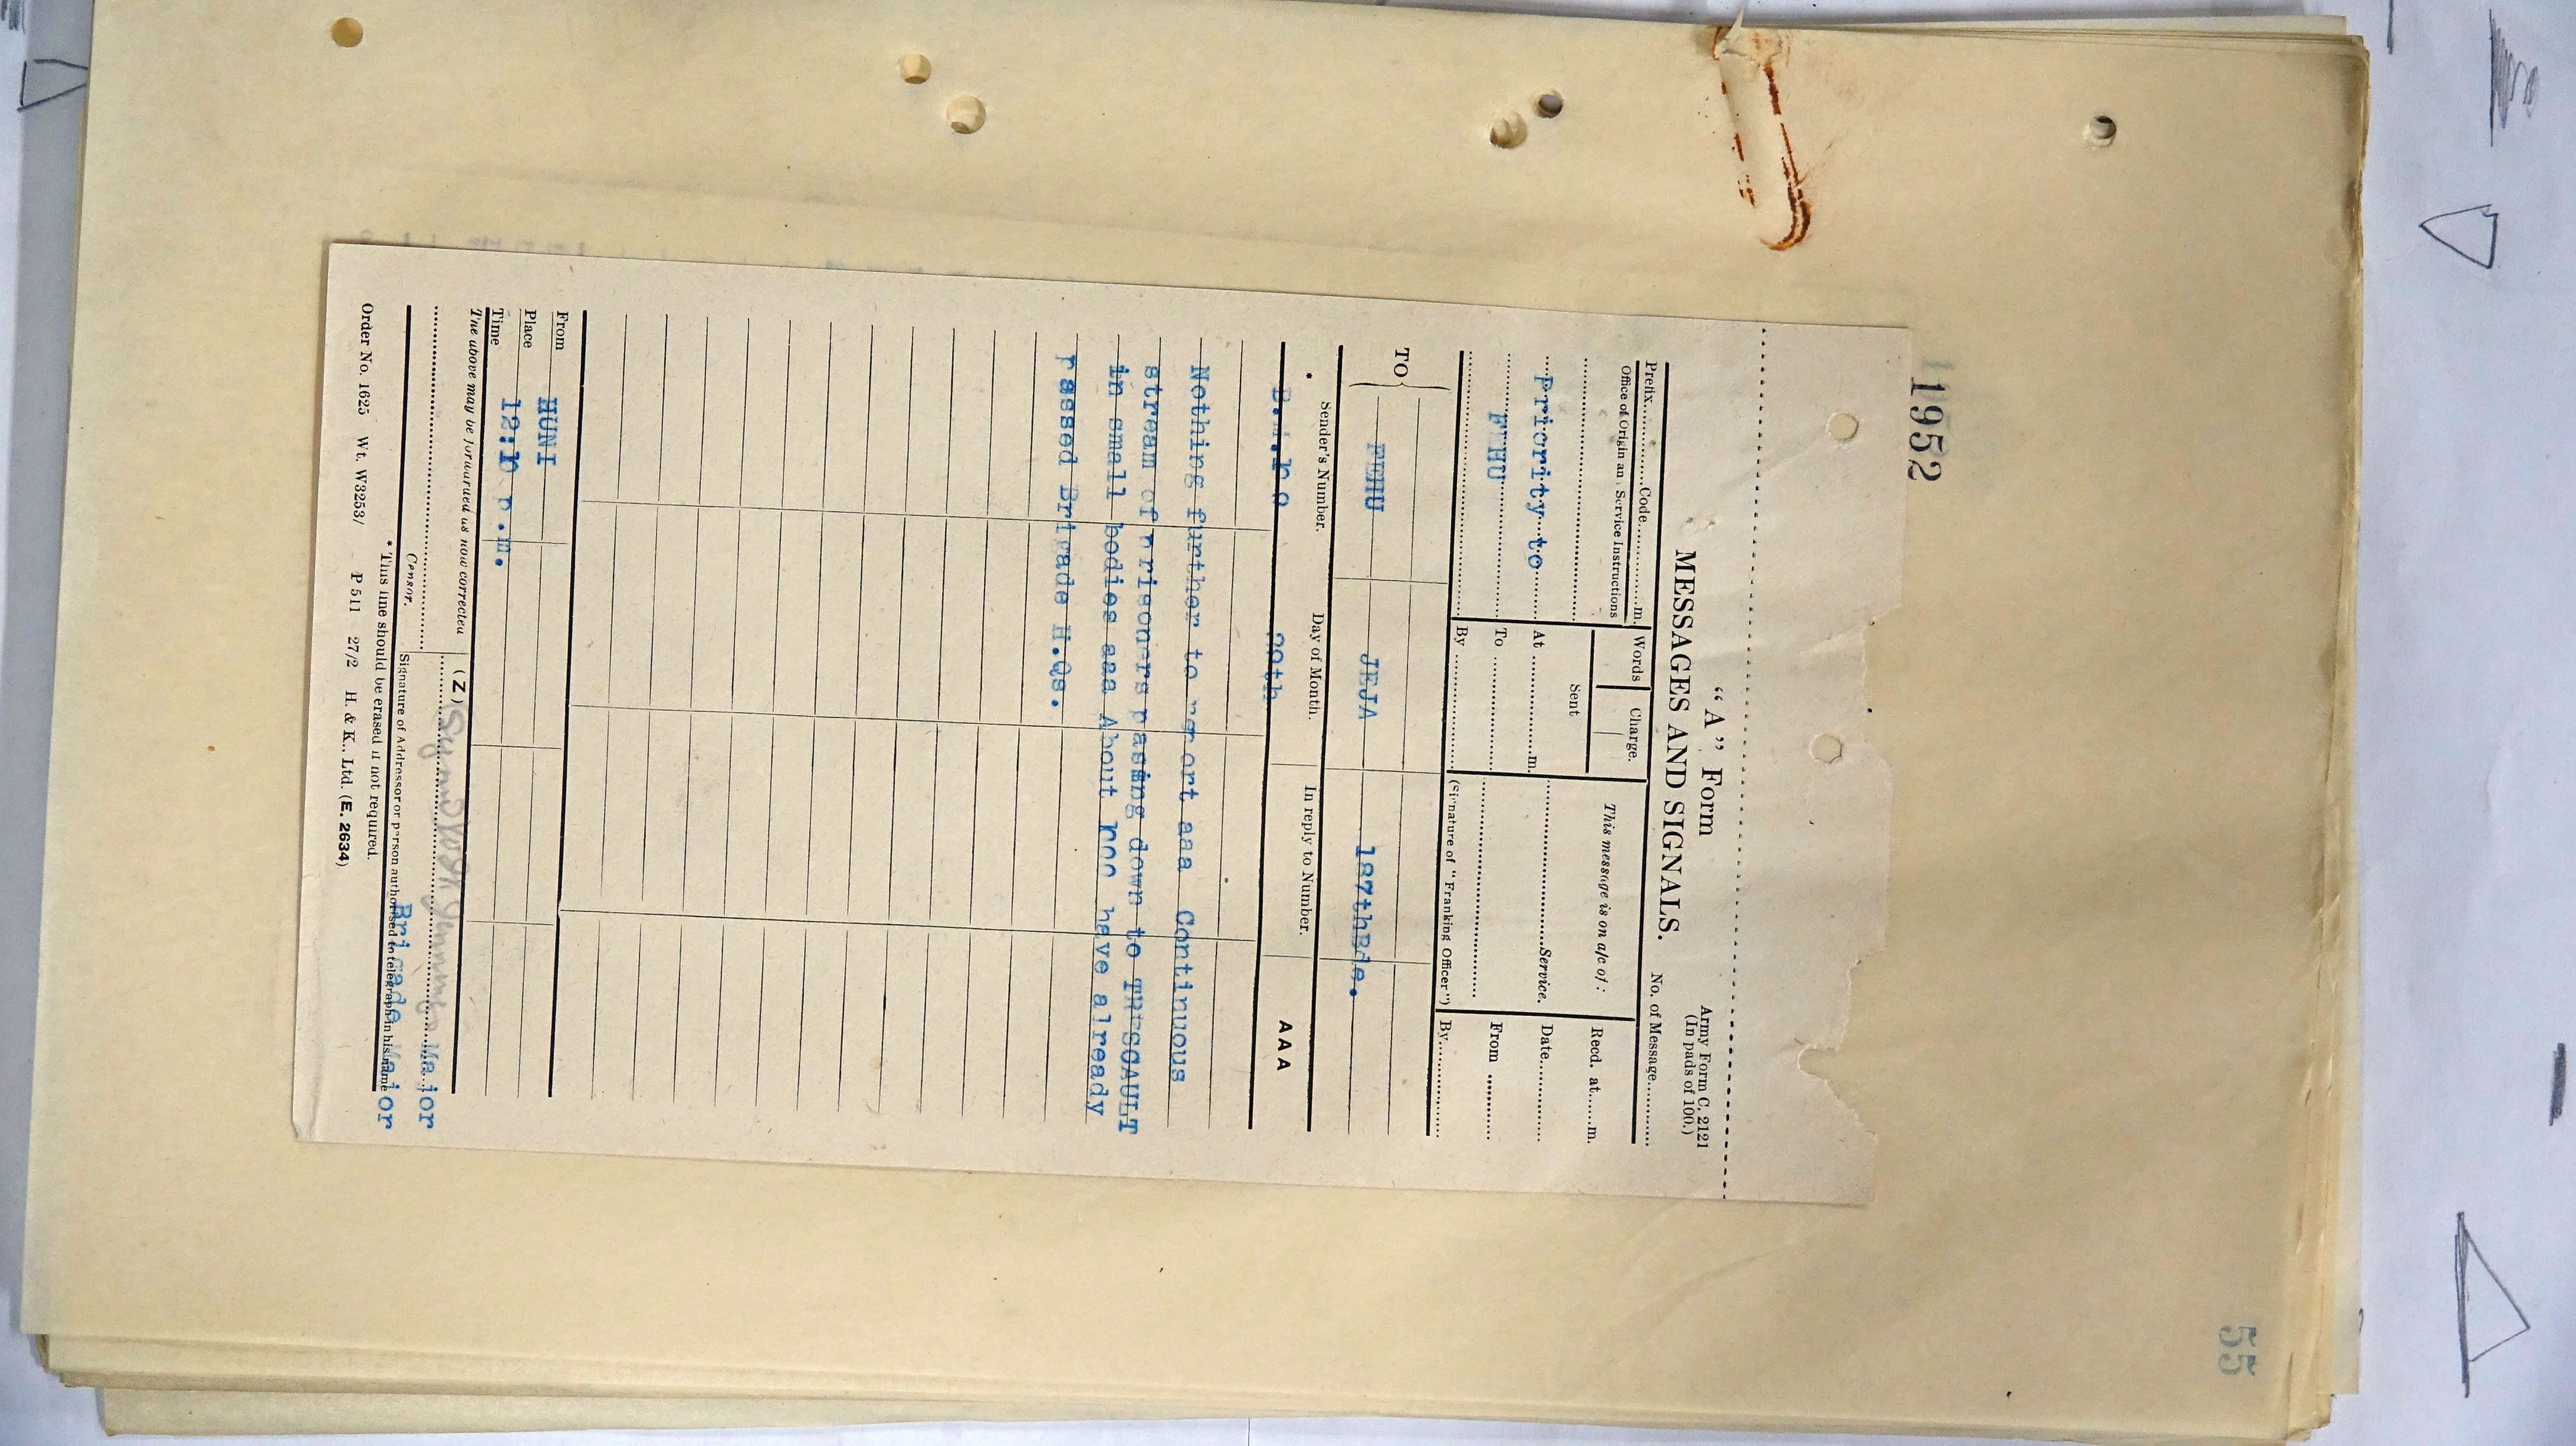 1952
"A" Form
Army Form C. 2121
(In pads of 100.)
MESSAGES AND SIGNALS.
No. of Message
Prefix Code m.
Words Charge.
This message is on a/c of:
Recd. at m.
Office of Origin an Service Instructions
Sent
Priority to
At m.
Service.
Date
FEHU
To
From
By
(Signature of "Franking Officer")
By
TO
FEHU JEJA 187thBde.
Sender's Number. Day of Month. In reply to Number.
AAA
Nothing further to report aaa Continuous
stream of prisoners passing down to TRESCAULT
in small bodies aaa About have already
passed Brigade H.Qs.
From HUNI
Place
Time p.m.
The above may be forwarded as now corrected (Z)
Major
Censor. Signature of Addressor or person authorised to telegraph in his name
Brigade Major
* This line should be erased if not required.
Order No. 1625 Wt. W3253/ P 511 27/2 H. & K., Ltd. (E. 2634)
55